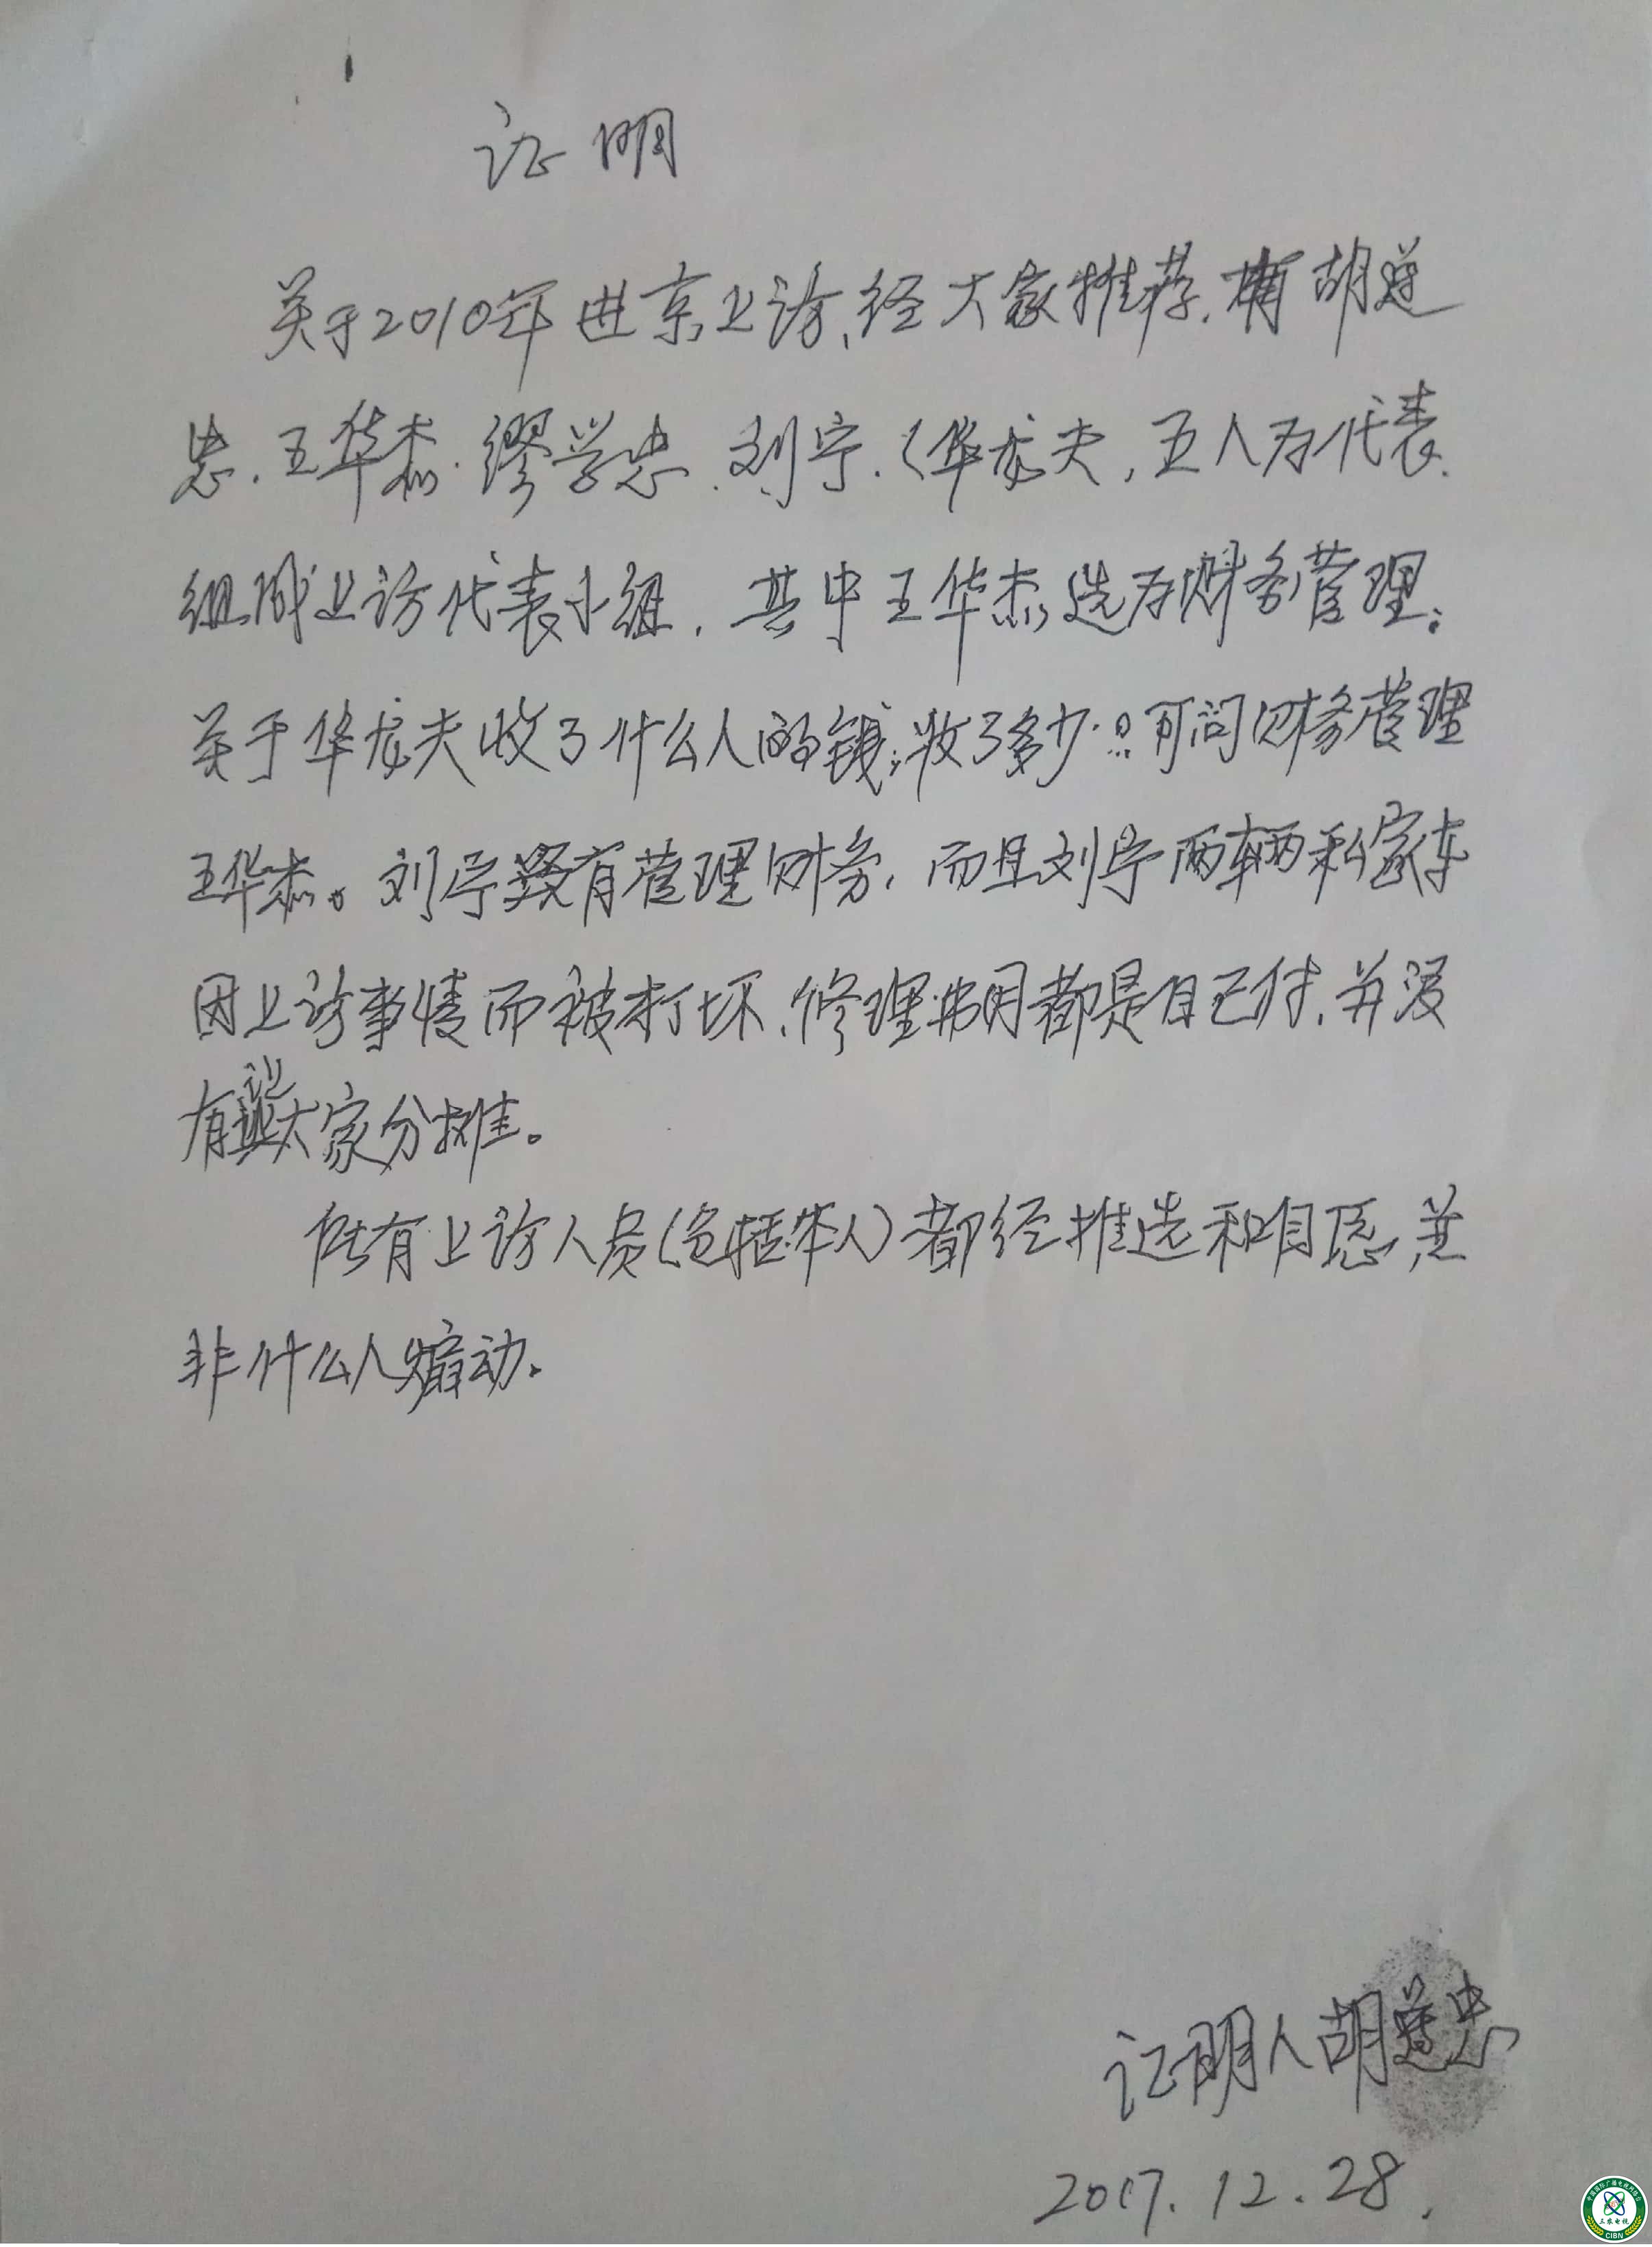 证明
关于2010年进京上访、经大家推荐.有胡道
忠.王华杰.缪学忠.刘宁.(华龙夫,五人为代表.
组成上访代表小组.其中王华杰选为财务管理;
关于华龙夫收了什么人的钱;收了多少;只可问财务管理
王华杰。刘宁没有管理财务.而且刘宁两辆私家车
因上访事情而被打坏、修理费用都是自己付.并没
有让大家分摊。
所有上访人员(包括本人)都经推选和自愿,并
非什么人煽动.
证明人胡道忠
2017.12.28.
三农电视
CIBN